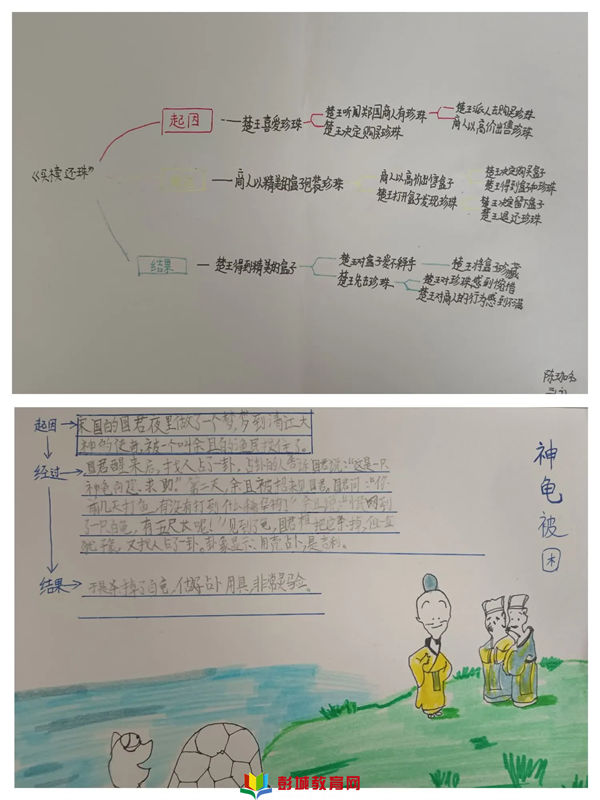 《买椟还珠》
起因
楚王喜爱珍珠
楚王听闻郑国商人有珍珠
楚王决定购买珍珠
楚王派人去购买珍珠
商人以高价出售珍珠
商人以精美的盒子包装珍珠
商人以高价出售盒子
楚王打开盒子发现珍珠
楚王决定购买盒子
楚王得到盒子和珍珠
楚王决定留下盒子
楚王退还珍珠
结果
楚王得到精美的盒子
楚王对盒子爱不释手
楚王失去珍珠
楚王将盒子珍藏
楚王对珍珠感到惋惜
楚王对商人的行为感到不满
神龟被困
起因
宋国的国君夜里做了一个梦,梦到清江大
神的使者,被一个叫余且的渔民捉住了。
经过
国君醒来后,找人占了一卦,占卦的人告诉国君说:“这是一只
神龟向您求助”第二天,余且被招来见国君,国君问:“你
前几天打鱼,有没有打到什么
到了一只白龟,有五尺大呢!”见到了龟,国君想把它杀掉,但
又找人占了一卦,卦象显示:用壳占卜,是吉利。
结果
于是杀掉了白龟,做好占卜用具,非常灵验。
彭城教育网